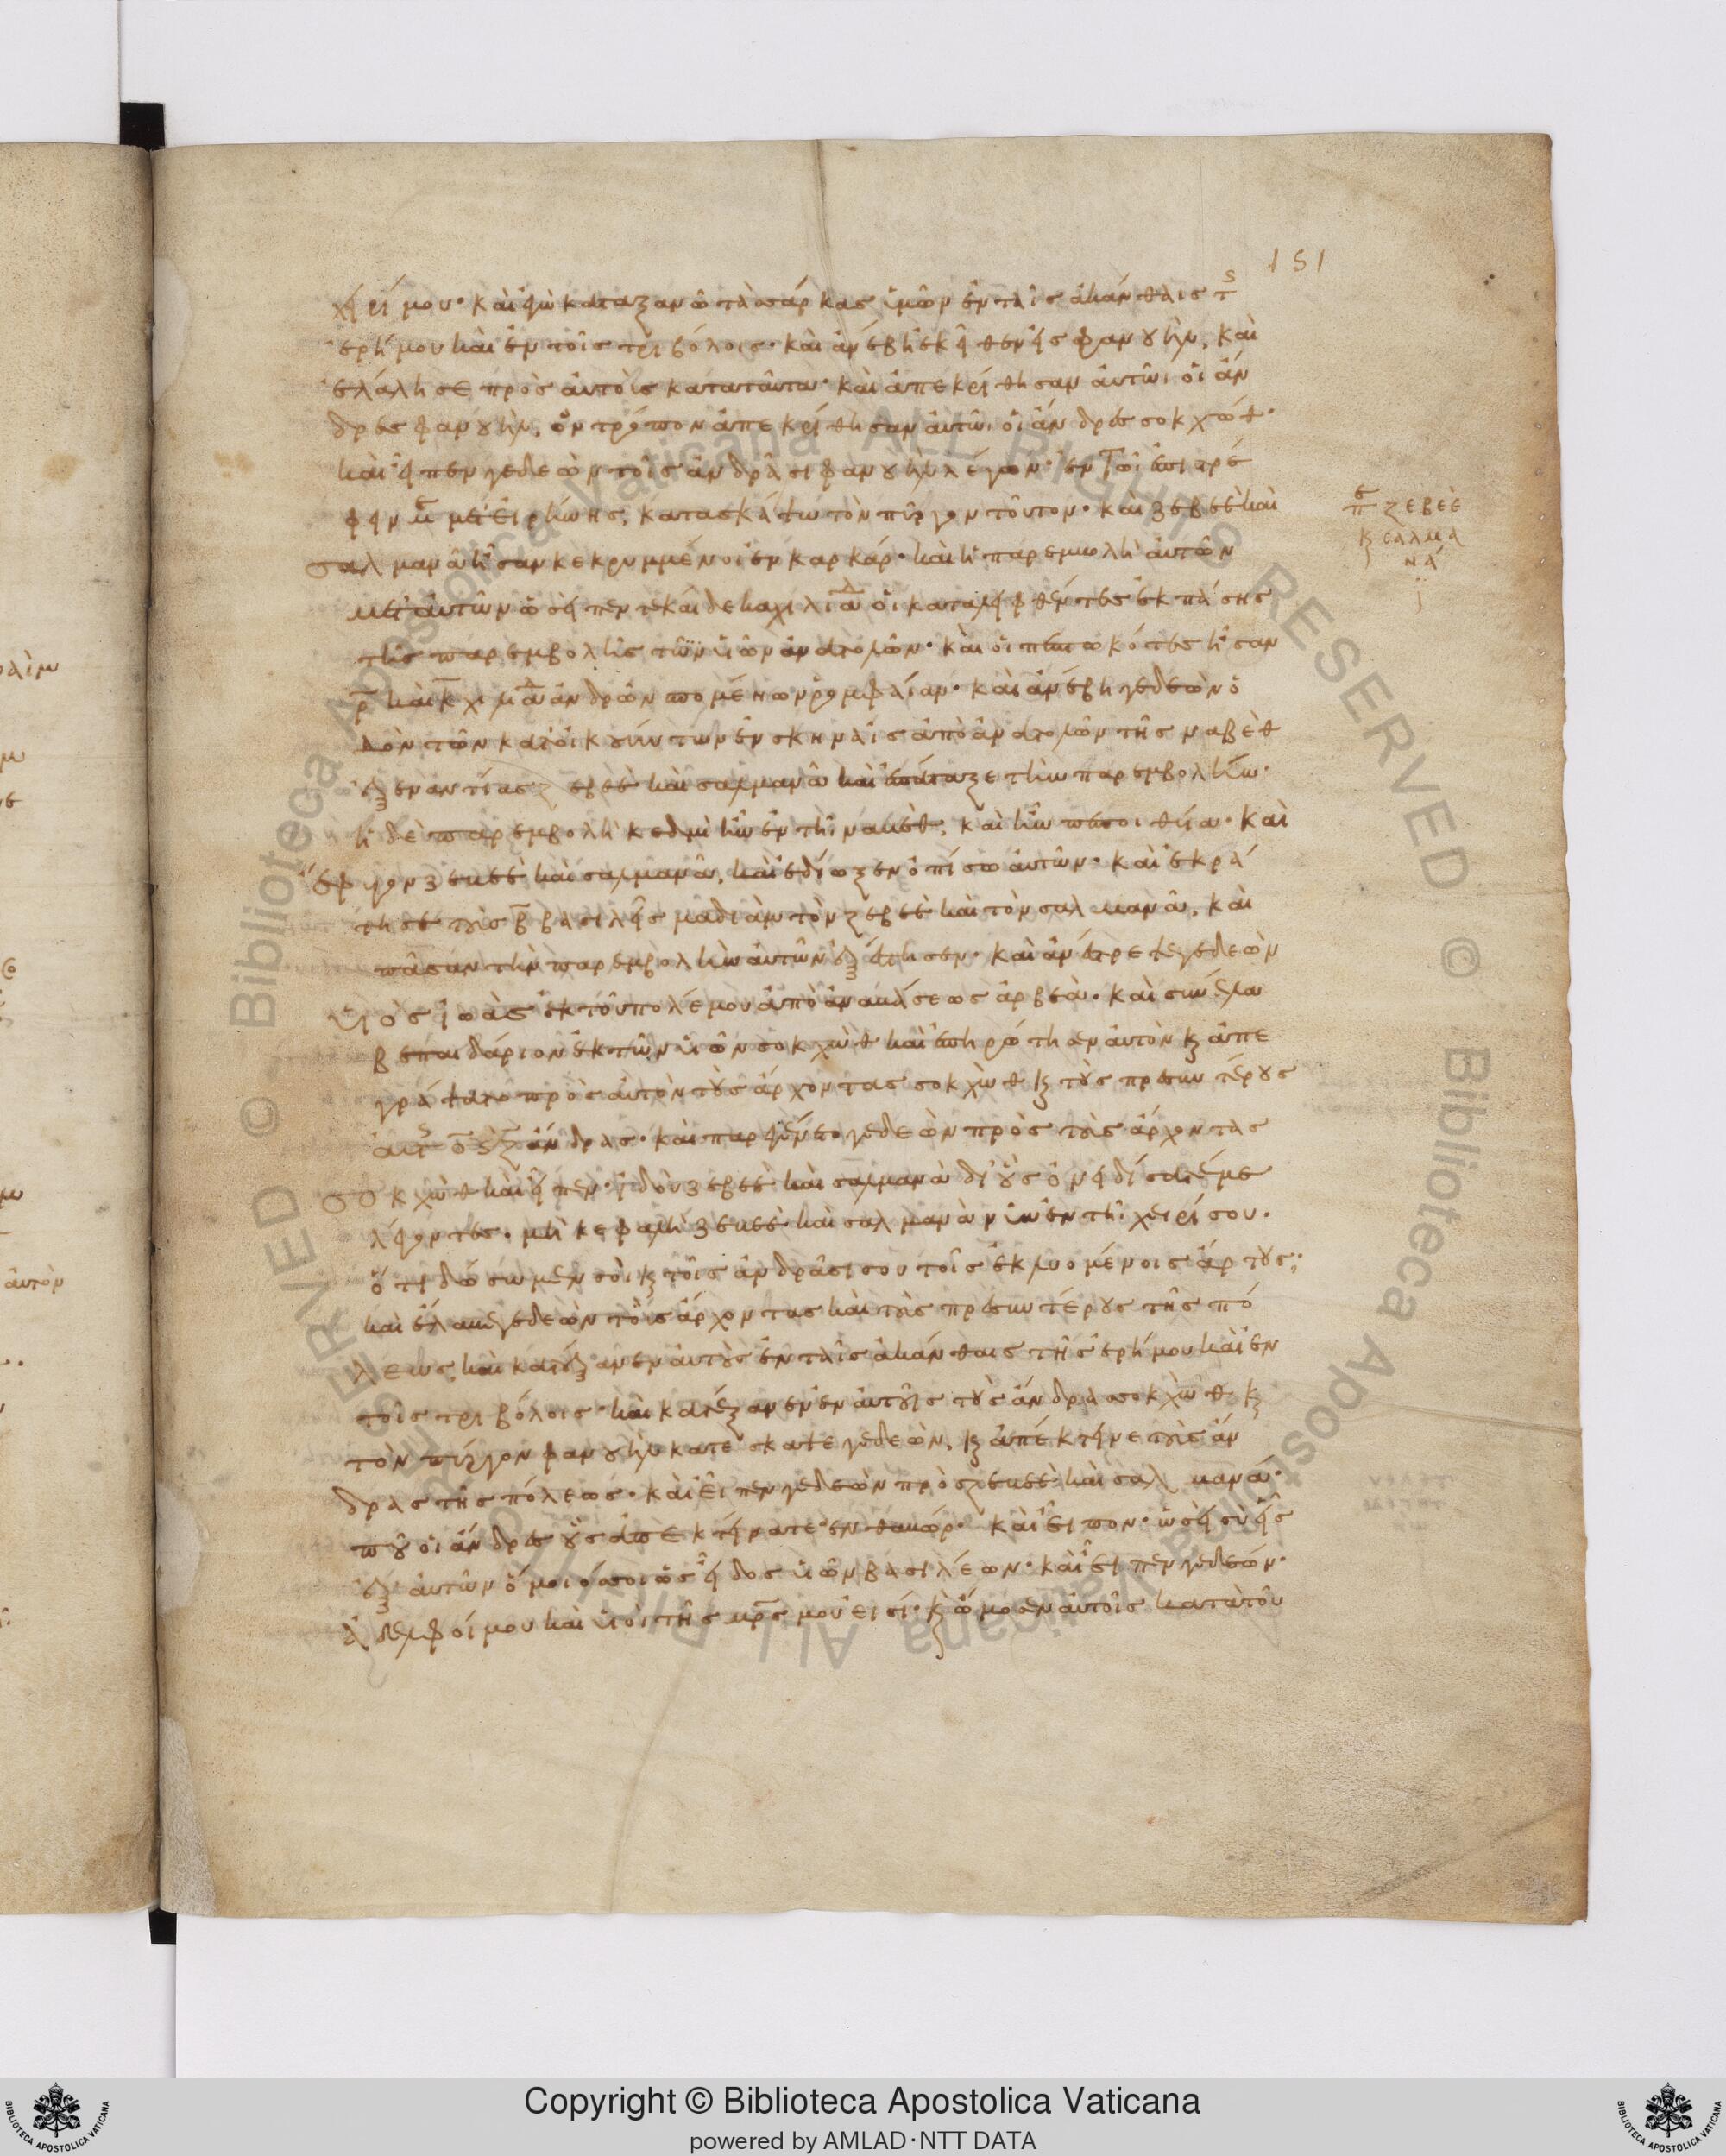 151
χειρί μου· καὶ ἐγὼ καταξανῶ τὰς σάρκας ὑμῶν ἐν ταῖς ἀκάνθαις τ
ἐρήμου καὶ ἐν τοῖς τριβόλοις· καὶ ἀνέβη ἐκεῖθεν εἰς φανουὴλ, καὶ
ἐλάλησε πρὸς αὐτοὺς κατὰ ταῦτα· καὶ ἀπεκρίθησαν αὐτῶι οἱ ἄν
δρες φανουὴλ, ὃν τρόπον ἀπεκρίθησαν αὐτῶι οἱ ἄνδρες σοκχώθ·
καὶ εἶπεν γεδεὼν τοῖς ἀνδράσι φανουὴλ λέγων· ἐν τῶι ἐπιστρέ
φειν με μετ εἰρήνης, κατασκάψω τὸν πύργον τοῦτον· καὶ ζεβεὲ καὶ
σαλμανᾶ ἦσαν κεκρυμμένοι ἐν καρκάρ· καὶ ἡ παρεμβολὴ αὐτῶν
μετ αὐτῶν ὡσεὶ πεντεκαίδεκα χιλιάδ οἱ καταλειφθέντες ἐκ πάσης
τῆς παρεμβολῆς τῶν υἱῶν ἀνατολῶν· καὶ οἱ πεπτωκότες ἦσαν
ρ καὶ κ χιλιάδ ἀνδρῶν σπομένων ρομφαίαν· καὶ ἀνέβη γεδεὼν ὁ
δὸν τῶν κατοικούντων ἐν σκηναῖς ἀπὸ ἀνατολῶν τῆς ναβὲθ
ἐξεναντίας ζεβεὲ καὶ σαλμανᾶ καὶ ἐπάταξε τὴν παρεμβολήν·
ἡ δὲ παρεμβολὴ κεδμὶ ἦν ἐν τῆι ναβεθ, καὶ ἦν πεποιθῖα· καὶ
ἔφυγον ζεβεὲ καὶ σαλμανᾶ, καὶ ἐδίωξεν ὀπίσω αὐτῶν· καὶ ἐκρά
τησε τοὺς β βασιλεῖς μαδιὰμ τὸν ζεβεὲ καὶ τὸν σαλμανᾶ, καὶ
πᾶσαν τὴν παρεμβολὴν αὐτῶν ἐξέστησεν· καὶ ἀνέστρεψε γεδεὼν
υἱὸς ἰωὰς ἐκ τοῦ πολέμου ἀπὸ ἀναβάσεως ἀρεσὰ· καὶ συνέλα
βε παιδάριον ἐκ τῶν υἱῶν σοκχὼθ καὶ ἐπηρώτησεν αὐτὸν κ ἀπε
γράψατο πρὸς αὐτὸν τοὺς ἄρχοντας σοκχὼθ κ τοὺς πρεσβυτέρους
αὐτ οζ ἄνδρας· καὶ παρεγένετο γεδεὼν πρὸς τοὺς ἄρχοντας
σοκχὼθ καὶ εἶπεν· ἰδοὺ ζεβεὲ καὶ σαλμανὰ δι οὓς ὀνειδίσατέ με
λέγοντες· μὴ κεφαλὴ ζεβεὲ καὶ σαλμανὰ νῦν ἐν τῆι χειρί σου·
ὅτι δώσωμεν σοὶ κ τοῖς ἀνδράσι σου τοῖς ἐκλυομένοις ἄρτους;
καὶ ἔλαβε γεδεὼν τοὺς ἄρχοντας καὶ τοὺς πρεσβυτέρους τῆς πό
λεως, καὶ κατέξανεν αὐτοὺς ἐν ταῖς ἀκάνθαις τῆς ἐρήμου καὶ ἐν
τοῖς τριβόλοις· καὶ κατέξανεν ἐν αὐτοῖς τοὺς ἄνδρας σοκχὼθ κ
τὸν πύργον φανουὴλ κατέσκαψε γεδεὼν, κ ἀπέκτεινε τοὺς ἄν
δρας τῆς πόλεως· καὶ εἶπεν γεδεὼν πρὸς ζεβεὲ καὶ σαλμανά·
ποῦ οἱ ἄνδρες οὓς ἀπεκτείνατε ἐν θαβώρ· καὶ εἶπον· ὡσεὶ σὺ εἷς
ἐξ αὐτῶν ὅμοιός σοι ὡς εἶδος υἱῶν βασιλέων· καὶ εἶπεν γεδεών·
ἀδελφοί μου καὶ υἱοὶ τῆς μρς μού εἰσί· κ ὤμοσεν αὐτοῖς κατὰ τοῦ
π ζεβεὲ
κ σαλμα
νά
Copyright © Biblioteca Apostolica Vaticana
powered by AMLAD·NTT DATA